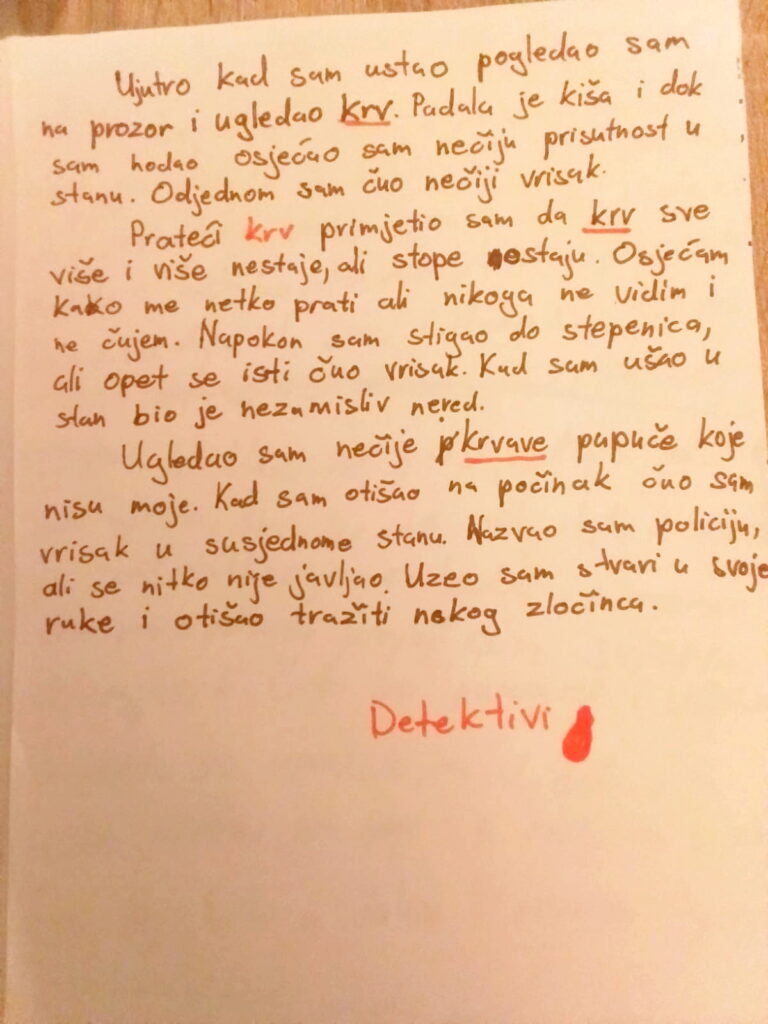 Ujutro kad sam ustao pogledao sam
na prozor i ugledao krv. Padala je kiša i dok
sam hodao osjećao sam nečiju prisutnost u
stanu. Odjednom sam čuo nečiji vrisak.
Prateći krv primjetio sam da krv sve
više i više nestaje, ali stope ostaju. Osjećam
kako me netko prati ali nikoga ne vidim i
ne čujem. Napokon sam stigao do stepenica,
ali opet se isti čuo vrisak. Kad sam ušao u
stan bio je nezamisliv nered.
Ugledao sam nečije krvave papuče koje
nisu moje. Kad sam otišao na počinak čuo sam
vrisak u susjednome stanu. Nazvao sam policiju,
ali se nitko nije javljao. Uzeo sam stvari u svoje
ruke i otišao tražiti nekog zločinca.
Detektivi